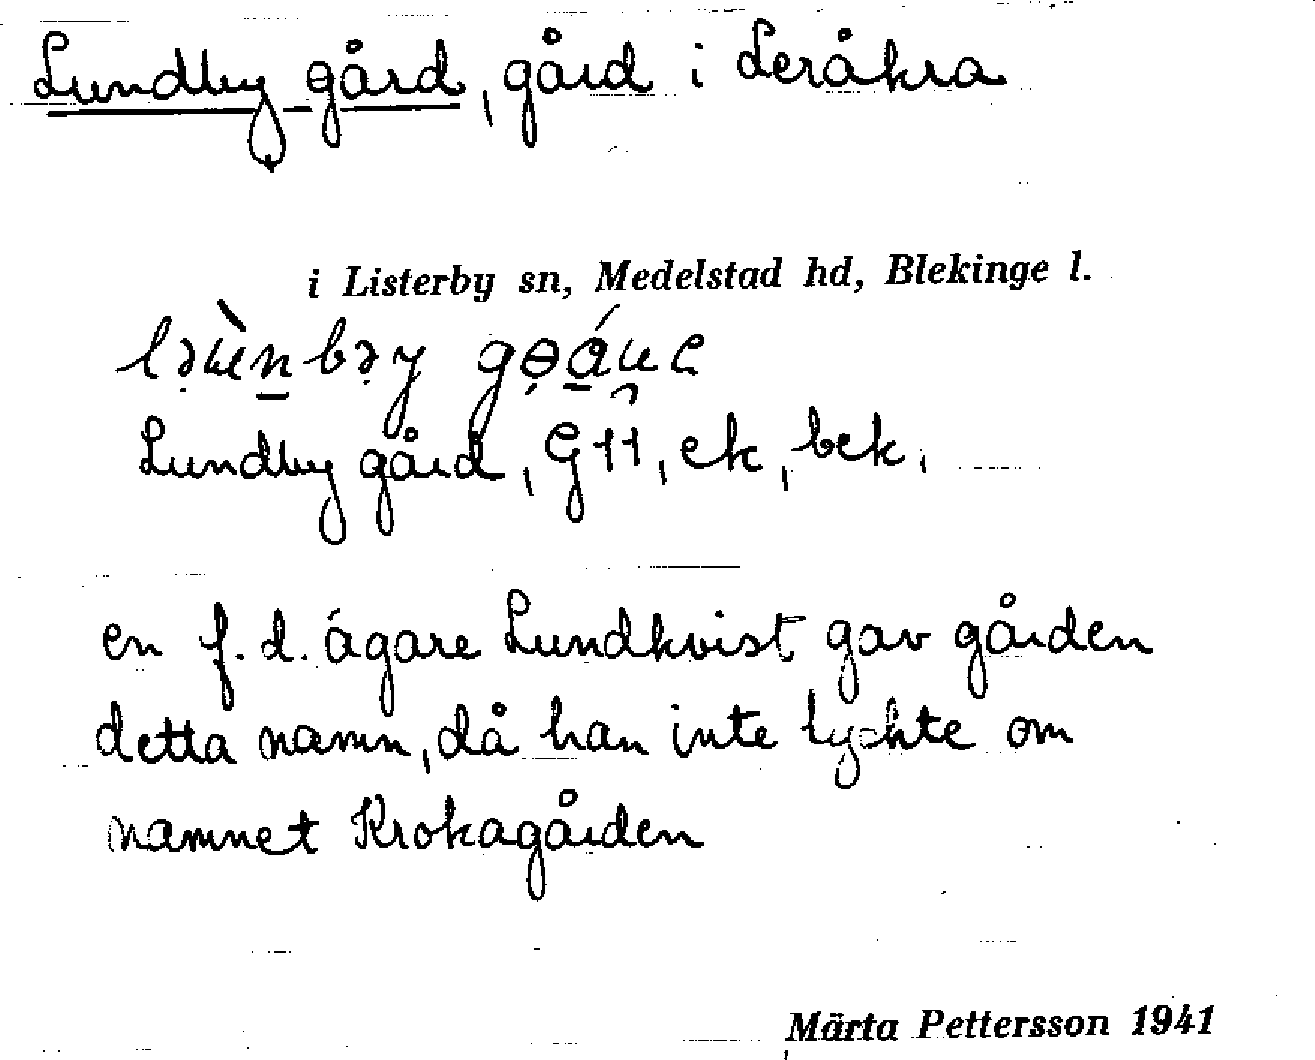 Lundby gård, gård i Leråkra
i Listerby sn, Medelstad hd, Blekinge l.
Lundby gård, G 11, ek, bek.
en f.d. ägare Lundkvist gav gården
detta namn, då han inte tyckte om
namnet Krokagården
Märta Pettersson 1941